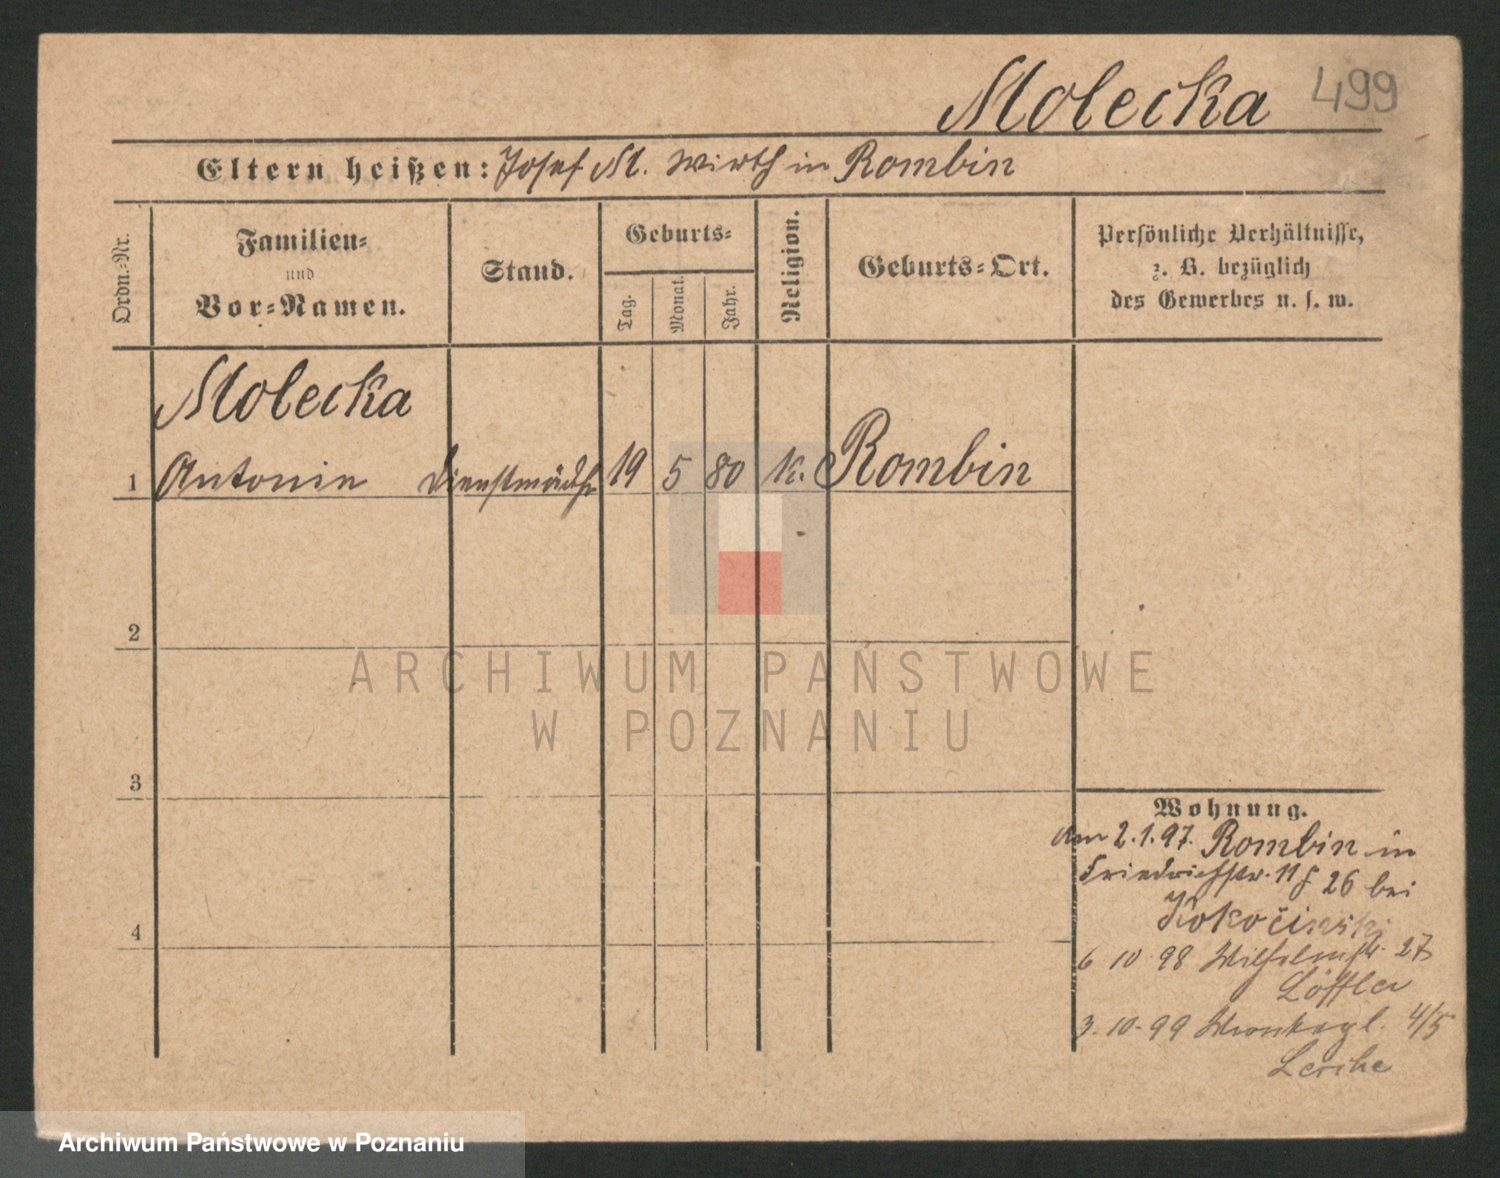 Molecka 499
Eltern heißen: Josef M. Wirth in Rombin
Ordn.-Nr.
Familien-
und
Vor-Namen.
Stand.
Geburts-
Tag.
Monat.
Jahr.
Religion.
Geburts-Ort.
Persönliche Verhältnisse,
z. B. bezüglich
des Gewerbes u. s. w.
Molecka
1 Antonin Dienstmädch 19 5 80 k. Rombin
2
ARCHIWUM PAŃSTWOWE
W POZNANIU
3
Wohnung.
am 2.1.97. Rombin in
Friedrichstr. 11 26 bei
4
6 10 98 Wilhelmstr. 27
Löffler
3.10.99 4/5
Archiwum Państwowe w Poznaniu